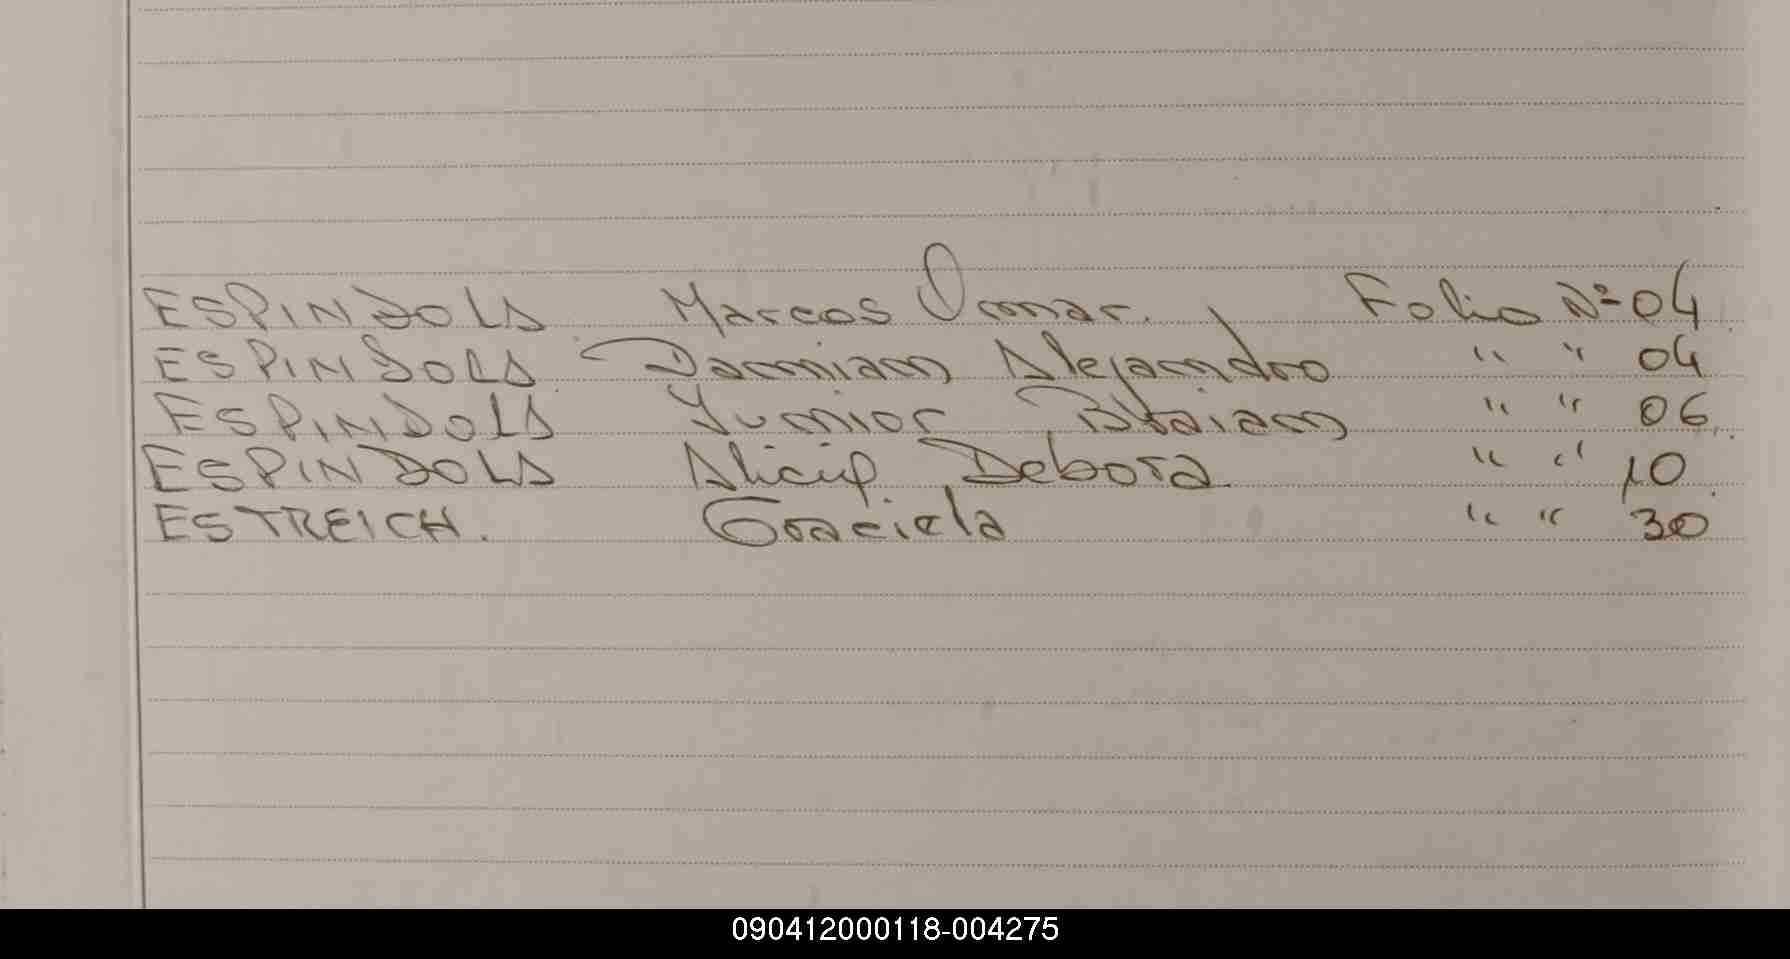 ESPINDOLA Marcos Omar. Folio Nº 04
ESPINDOLA Damian Alejandro " " 04
ESPINDOLA Yunior Braian " " 06
ESPINDOLA Alicia Debora " " 10
ESTREICH. Graciela " " 30
090412000118-004275